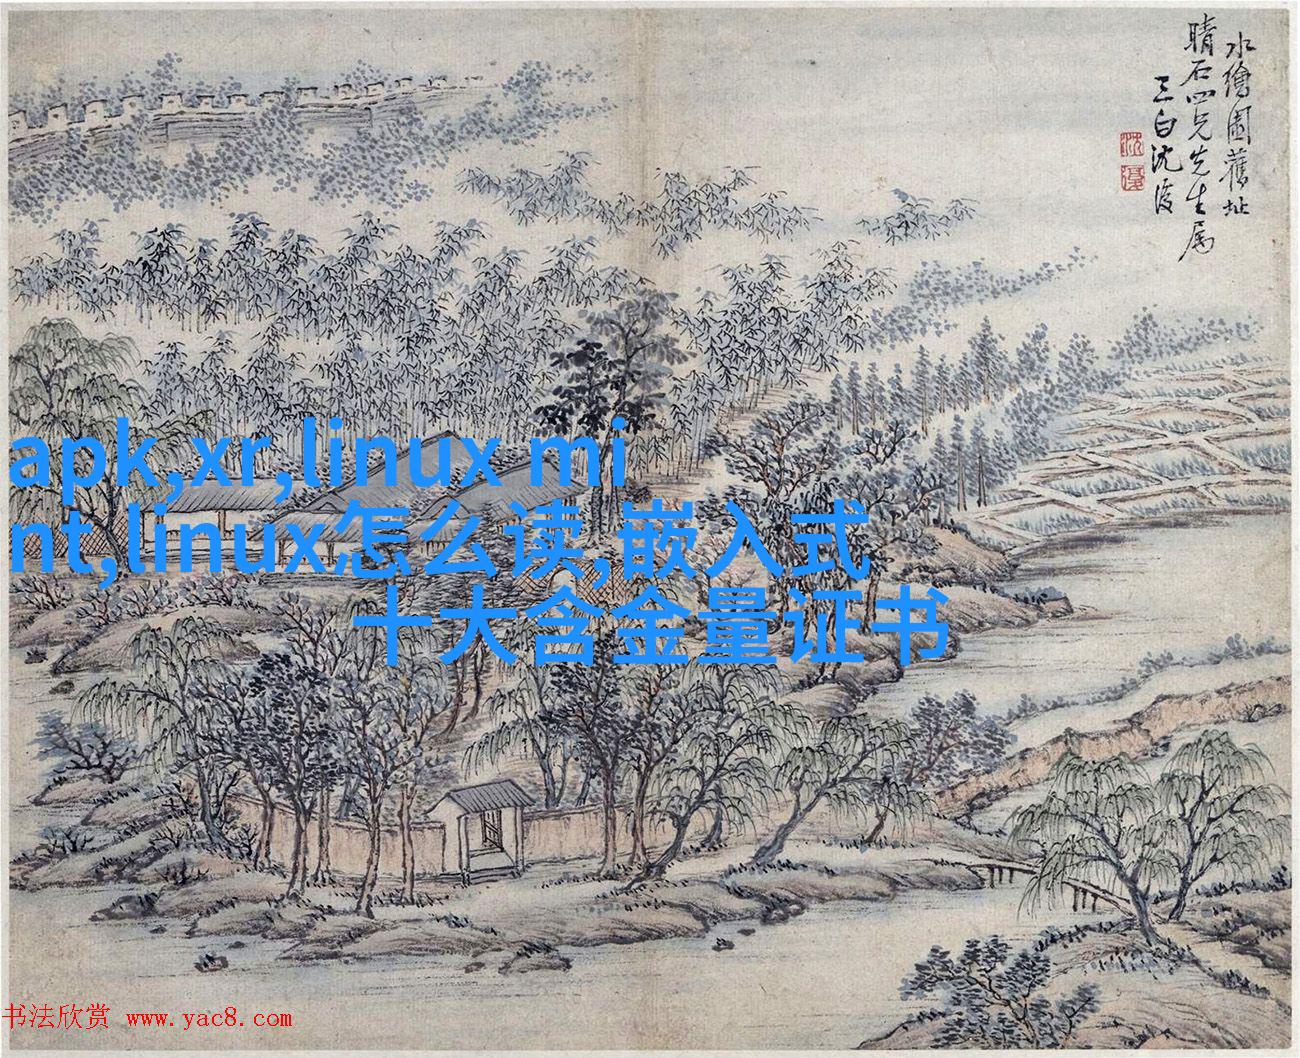 水繪園舊址
晴石四兄先生属
三白沈復
沈
復
apk,xr,linux mi
nt,linux怎么读,嵌入式
十大含金量证书
书法欣赏 www.yac8.com